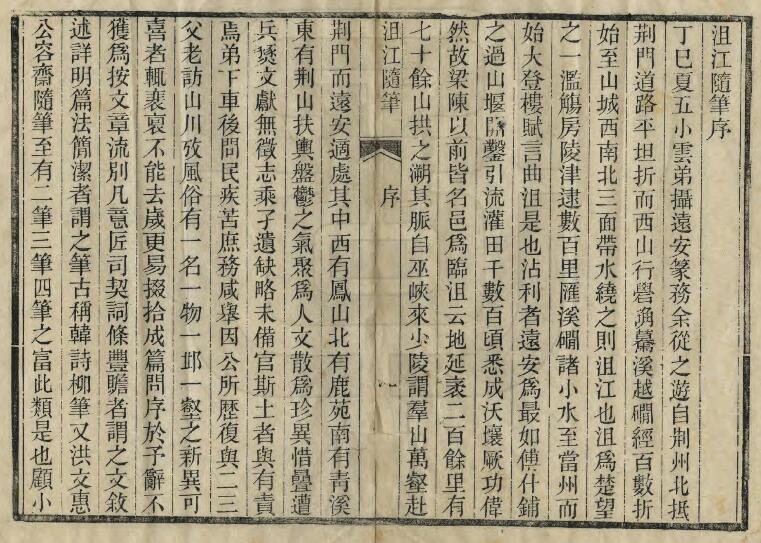 沮江隨筆序
丁巳夏五小雲弟攝遠安篆務余從之遊自荆州北抵
荆門道路平坦折而西山行礐确驀溪越磵經百數折
始至山城西南北三面帶水繞之則沮江也沮爲楚望
之一濫觴房陵津逮數百里匯溪磵諸小水至當州而
始大登樓賦言曲沮是也沾利者遠安爲最如傅什鋪
之過山堰開鑿引流灌田千數百頃悉成沃壤厥功偉
然故梁陳以前皆名邑爲臨沮云地延袤二百餘里有
七十餘山拱之溯其脈自巫峽來少陵謂羣山萬壑赴
沮江隨筆
序
荆門而遠安適處其中西有鳳山北有鹿苑南有青溪
東有荆山扶輿盤鬱之氣聚爲人文散爲珍異惜疊遭
兵燹文獻無徵志乘孑遺缺略未備官斯土者與有責
焉弟下車後問民疾苦庶務咸舉因公所歷復與二三
父老訪山川攷風俗有一名一物一邱一壑之新異可
喜者輒裹裹不能去歲更易掇拾成篇問序於予辭不
獲爲按文章流別凡意匠司契詞條豐贍者謂之文敘
述詳明篇法簡潔者謂之筆古稱韓詩柳筆又洪文惠
公容齋隨筆至有二筆三筆四筆之富此類是也顧小